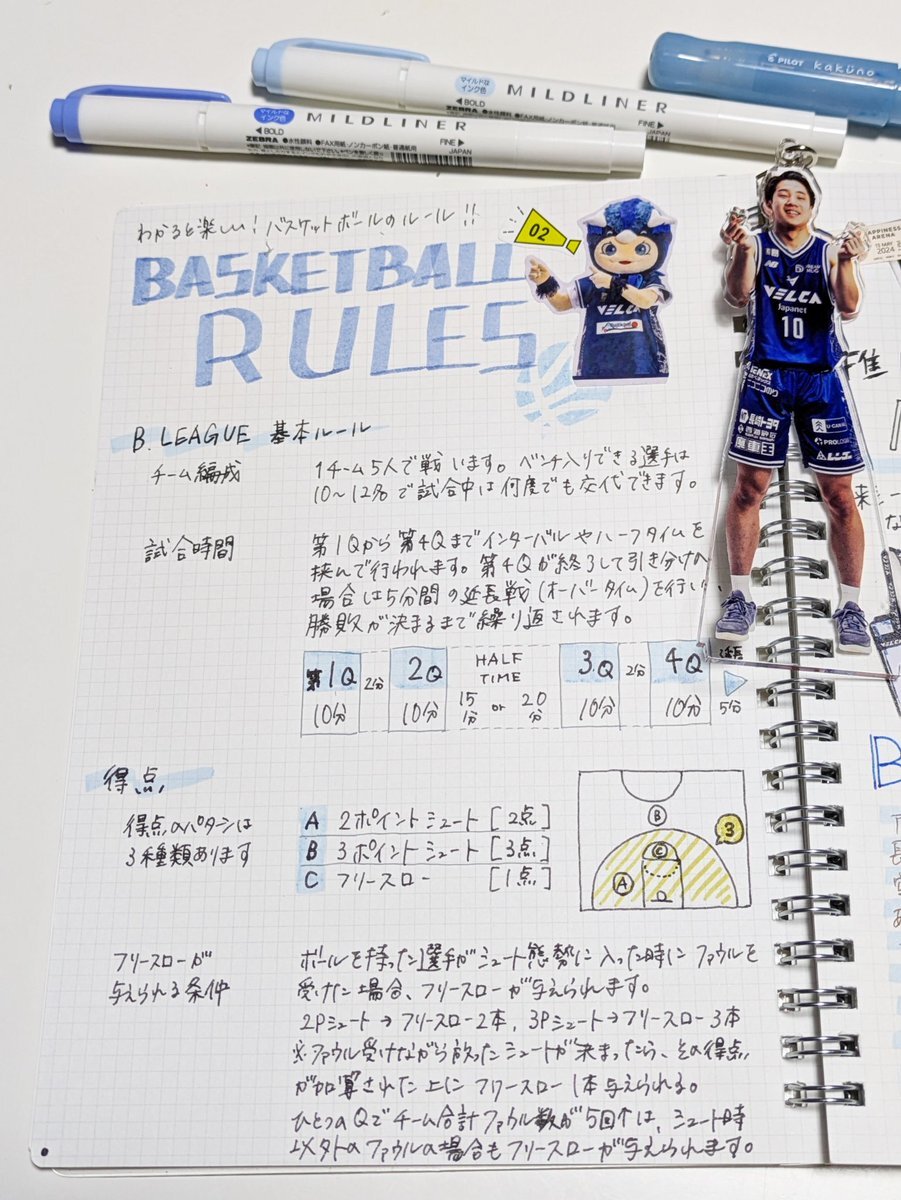 PILOT kaküno
マイルドなインク色
MILDLINER
◀BOLD
FINE▶
マイルドなインク色
MILDLINER
◀BOLD
ZEBRA ●水性顔料 ●FAX用紙・ノンカーボン紙・普通紙用
FINE▶
JAPAN
わかると楽しい!バスケットボールのルール!!
BASKETBALL
RULES
02
VELCA
APPINESS
ARENA
2024
VELCA
Japanet
10
U-CAN
PROLOGIS
B.LEAGUE 基本ルール
チーム編成
1チーム5人で戦います。ベンチ入りできる選手は
10〜12名で試合中は何度でも交代できます。
試合時間
第1Qから第4Qまでインターバルやハーフタイムを
挟んで行われます。第4Qが終了して引き分けの
場合は5分間の延長戦(オーバータイム)を行い
勝敗が決まるまで繰り返されます。
第1Q 2分 2Q HALF TIME 3Q 2分 4Q 延長
10分 10分 15分 or 20分 10分 10分 5分
得点
得点のパターンは
3種類あります
A 2ポイントシュート [2点]
B 3ポイントシュート [3点]
C フリースロー [1点]
B
3
C
A
フリースローが
与えられる条件
ボールを持った選手がシュート態勢に入った時にファウルを
受けた場合、フリースローが与えられます。
2Pシュート→フリースロー2本, 3Pシュート→フリースロー3本
※ファウル受けながら放ったシュートが決まったら、その得点
が加算された上にフリースロー1本与えられる。
ひとつのQでチーム合計ファウル数が5回↑は、シュート時
以外のファウルの場合もフリースローが与えられます。